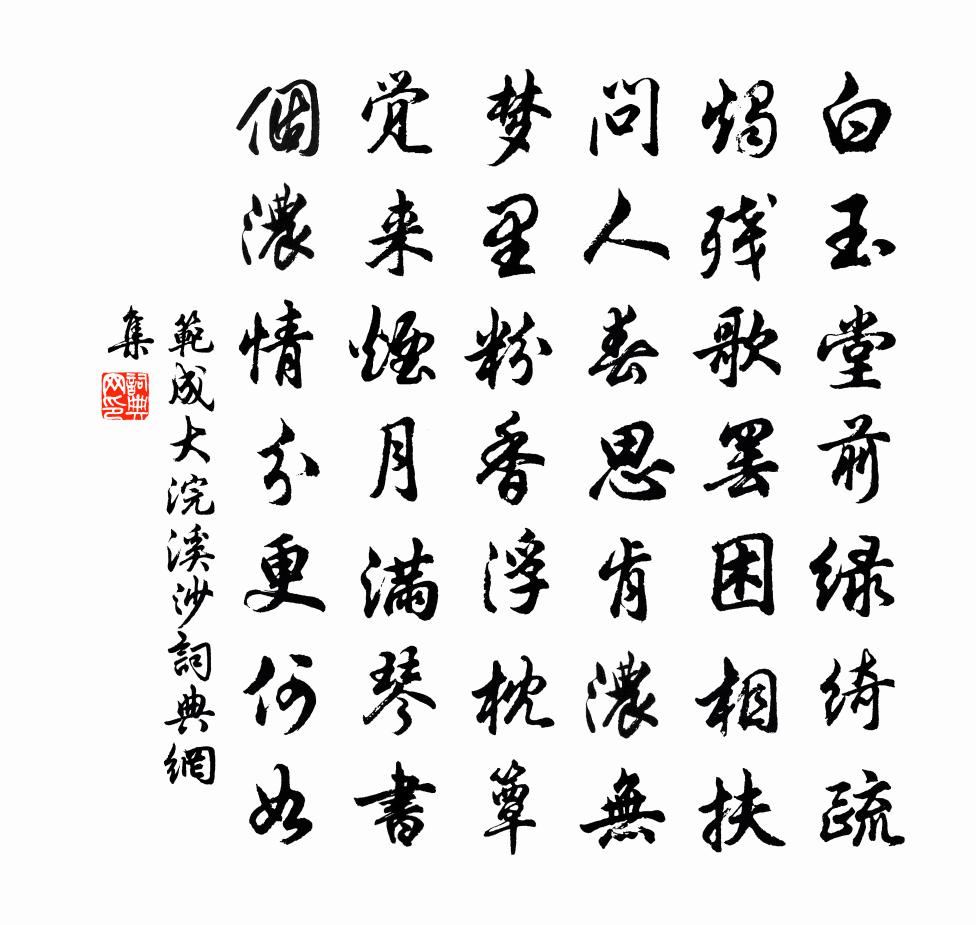 白玉堂前绿绮疏
烛残歌罢困相扶
问人春思肯浓无
梦里粉香浮枕簟
觉来烟月满琴书
个浓情分更何如
範成大浣溪沙詞典網
集
詞典网印